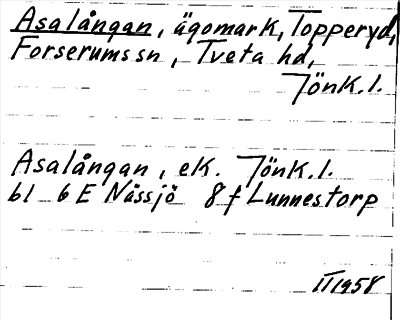 Asalången, ägomark, Topperyd,
Forserums sn, Tveta hd,
Jönk. l.
Asalången, ek. Jönk. l.
bl 6 E Nässjö 8 f Lunnestorp
II 1958